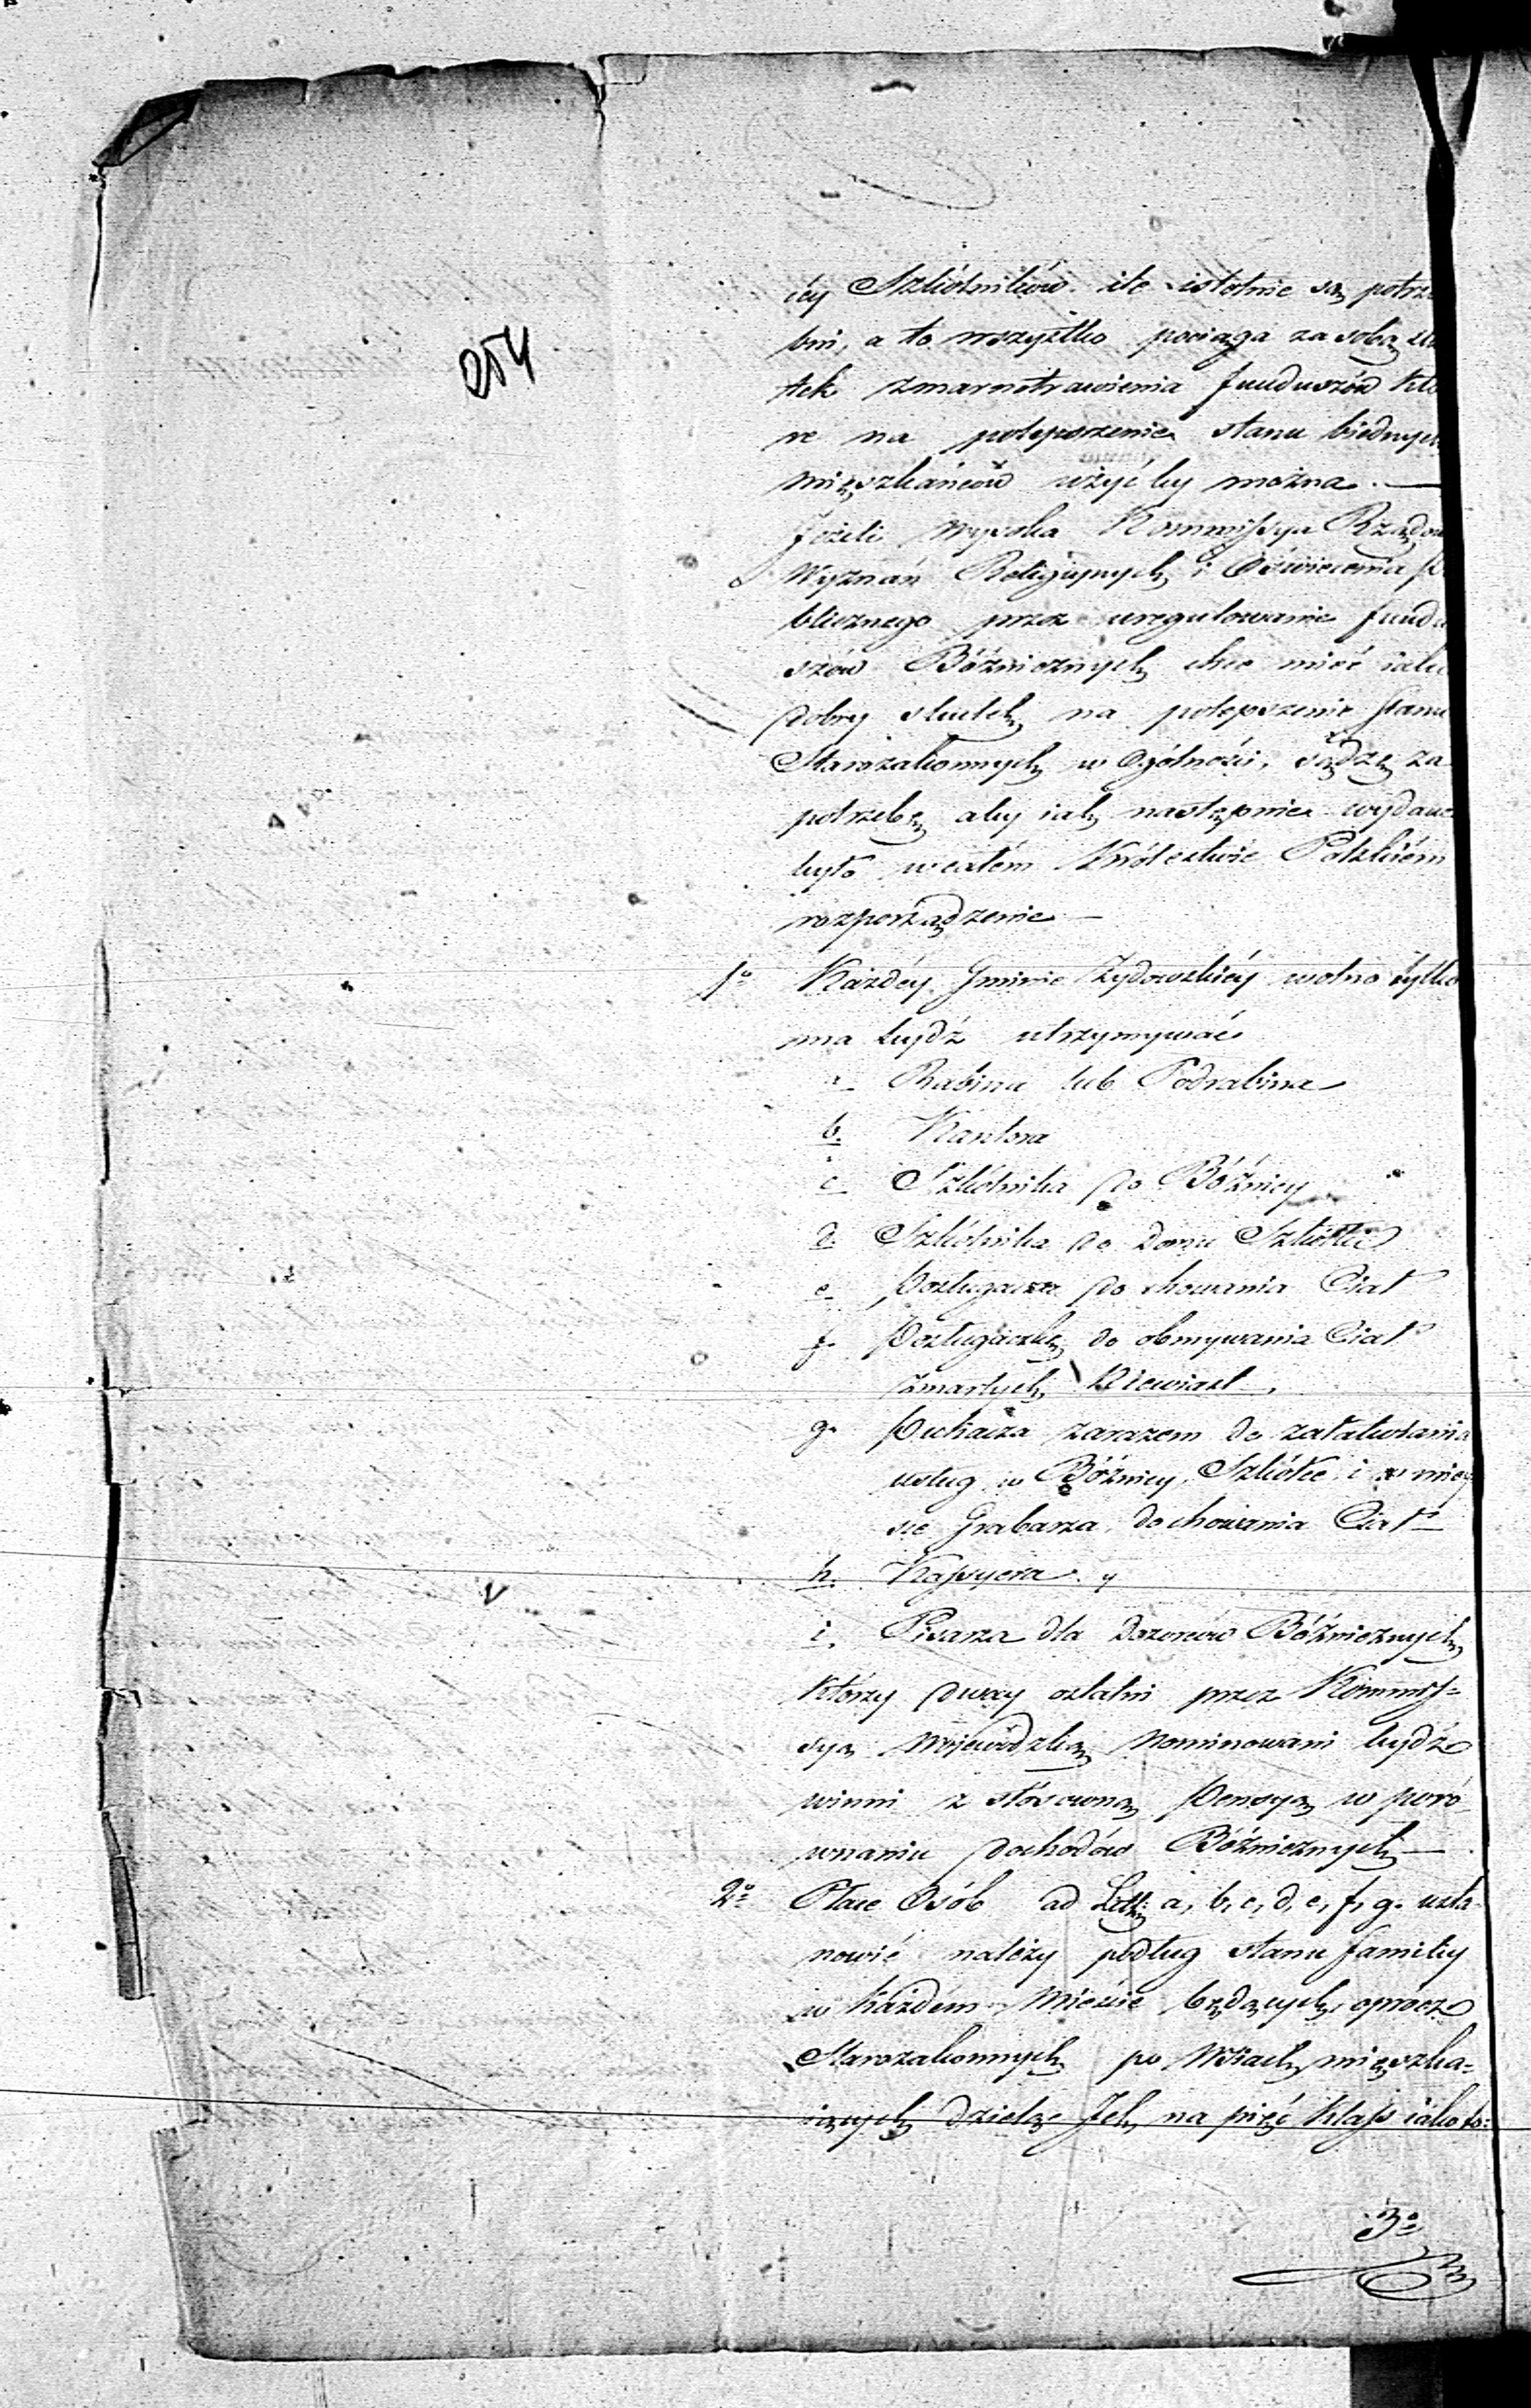 254
icy Szkólników ile istotnie są potrze
bni, a to wszystko pociąga za sobą sku
tek zmarnotrawienia funduszów któ
re na polepszenie stanu biednych
mięszkańców użyć by można. —
Jeżeli Wysoka Kommissya Rządow
Wyznań Religijnych i Oświecenia Pu
blicznego przez uregulowanie fundu
szów Bóżnicznych chce mieć iaki
dobry skutek na polepszenie stanu
Starozakonnych w Ogólności, sądzę za
potrzebę aby iak następnie wydane
było w całém Królestwie Polskiém
rozporządzenie —
1o Każdéy Gminie Żydowskiéy wolno tylko
ma bydź utrzymywać
a Rabina lub Podrabina
b. Kantora
c Szkólnika do Bóżnicy
d. Szkólnika do Domu Szkółki
e Posługacza do chowania Ciał
f. Posługaczkę do obmywania Ciał
zmarłych Niewiast.
g. Pukacza zarazem do załatwiania
usług w Bóżnicy, Szkółce i w miey
sce Grabarza do chowania Ciał —
h. Kassyera y
i. Pisarza dla Dozorców Bóżnicznych
którzy dway ostatni przez Kommis=
syą Wojewódzką Nominowani bydź
winni z stósowną Pensyą w poró
wnaniu dochodów Bóżnicznych —
2o Płace Osób ad Litt: a, b, c, d, e, f, g. usta
nowić należy podług stanu familiy
w każdém Mieście będących, oprócz
Starozakonnych po Wsiach mięszka=
iących dzielę Jch na pięć Klass iako to:
3o